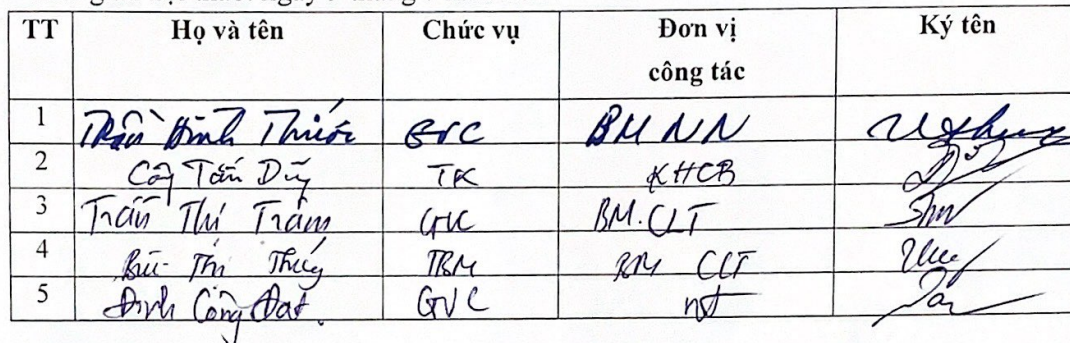 TT Họ và tên Chức vụ Đơn vị công tác Ký tên
1 Trần Đình Thước GVC BM NN
2 Công Tấn Dũng TK KHCB
3 Trần Thị Trâm GVC BM.CLT
4 Bùi Thị Thúy TBM BM CLT
5 Đinh Công Đạt. GVC nt